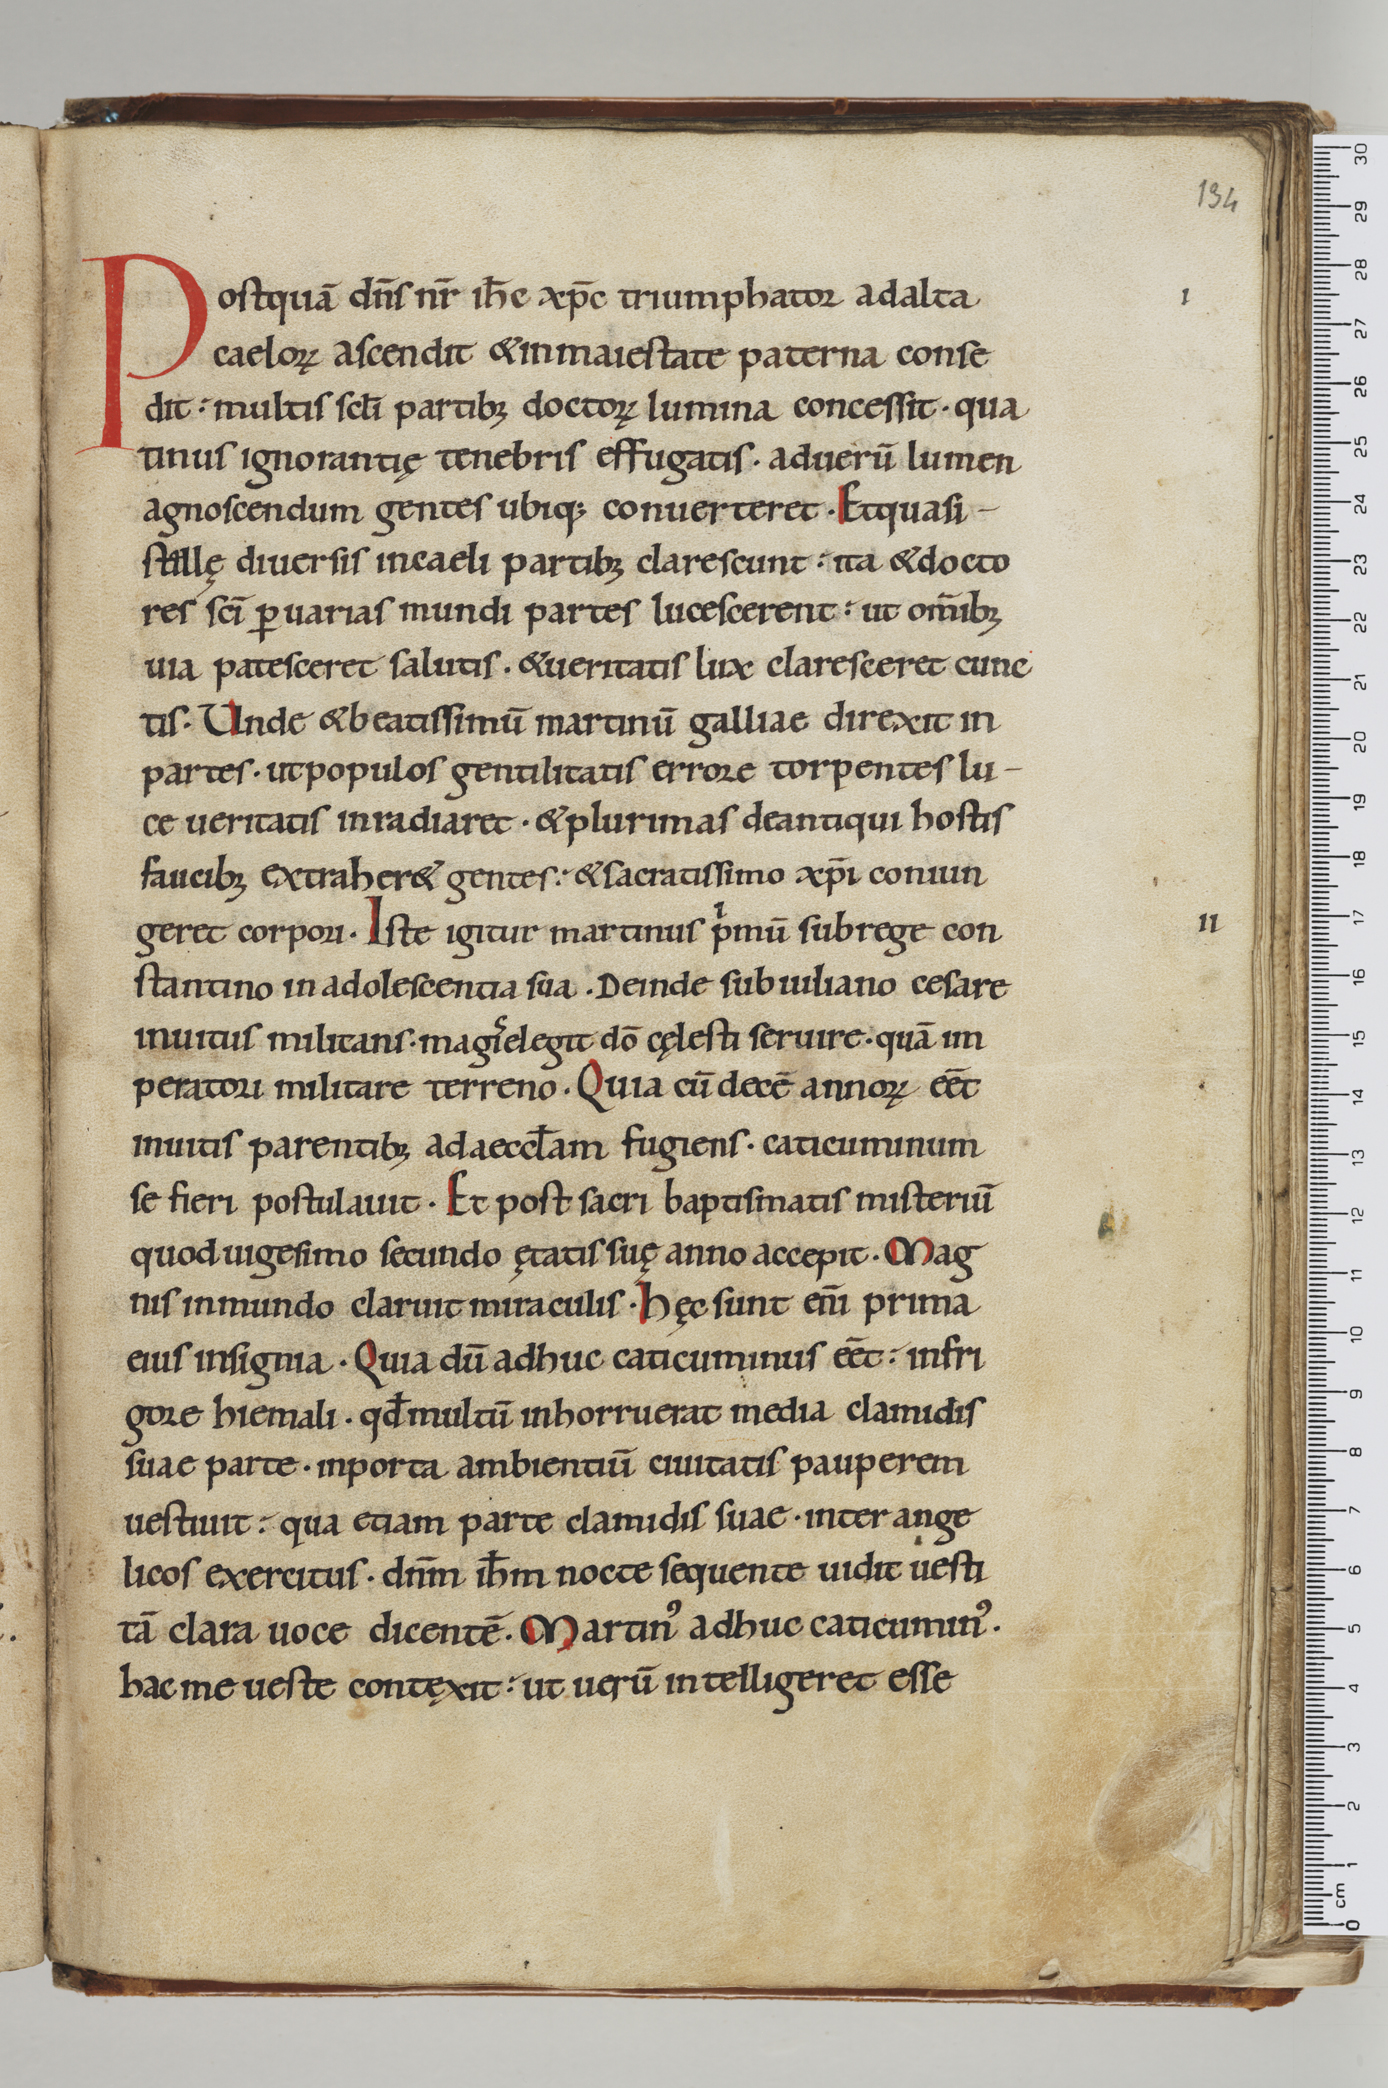 134
Postquā dn̄s nr̄ ih̄c xp̄c triumphator adalta
I
caeloꝝ ascendit &inmaiestate paterna conse
dit: multis scl̄i partibꝫ doctoꝝ lumina concessit· qua
tinus ignorantię tenebris effugatis· aduerū lumen
agnoscendum gentes ubiq; conuerteret· Etquasi –
stellę diuersis incaeli partibꝫ clarescunt: ita &docto
res sc̄i ꝑuarias mundi partes lucescerent: ut om̄ibꝫ
uia patesceret salutis· &ueritatis lux claresceret cunc
tis· Unde &beatissimū martinū galliae direxit in
partes· utpopulos gentilitatis errore torpentes lu –
ce ueritatis inradiaret· &plurimas deantiqui hostis
faucibꝫ extraher& gentes: &sacratissimo xp̄i coniun
geret corpori· Iste igitur martinus pͥmū subrege con
II
stantino inadolescentia sua· Deinde subiuliano cesare
inuitus militans· magis elegit dō cęlesti seruire· quā im
peratori militare terreno· Quia cū decē annoꝝ eēt
inuitis parentibꝫ adaeccl̄am fugiens· caticuminum
se fieri postulauit· Et post sacri baptismatis misteriū
quoduigesimo secundo ętatis suę anno accepit· Mag
nis inmundo claruit miraculis· hęc sunt eni̅ prima
eius insignia· Quia dū adhuc caticuminus eēt: infri
gore hiemali· qđ multū inhorruerat media clamidis
suae parte· inporta ambientiū ciuitatis pauperem
uestiuit: qua etiam parte clamidis suae· inter ange
licos exercitus· dn̄m ih̄m nocte sequente uidit uesti
tā clara uoce dicentē· Martinꝰ adhuc caticuminꝰ·
hac me ueste contęxit: ut uerū intelligeret esse